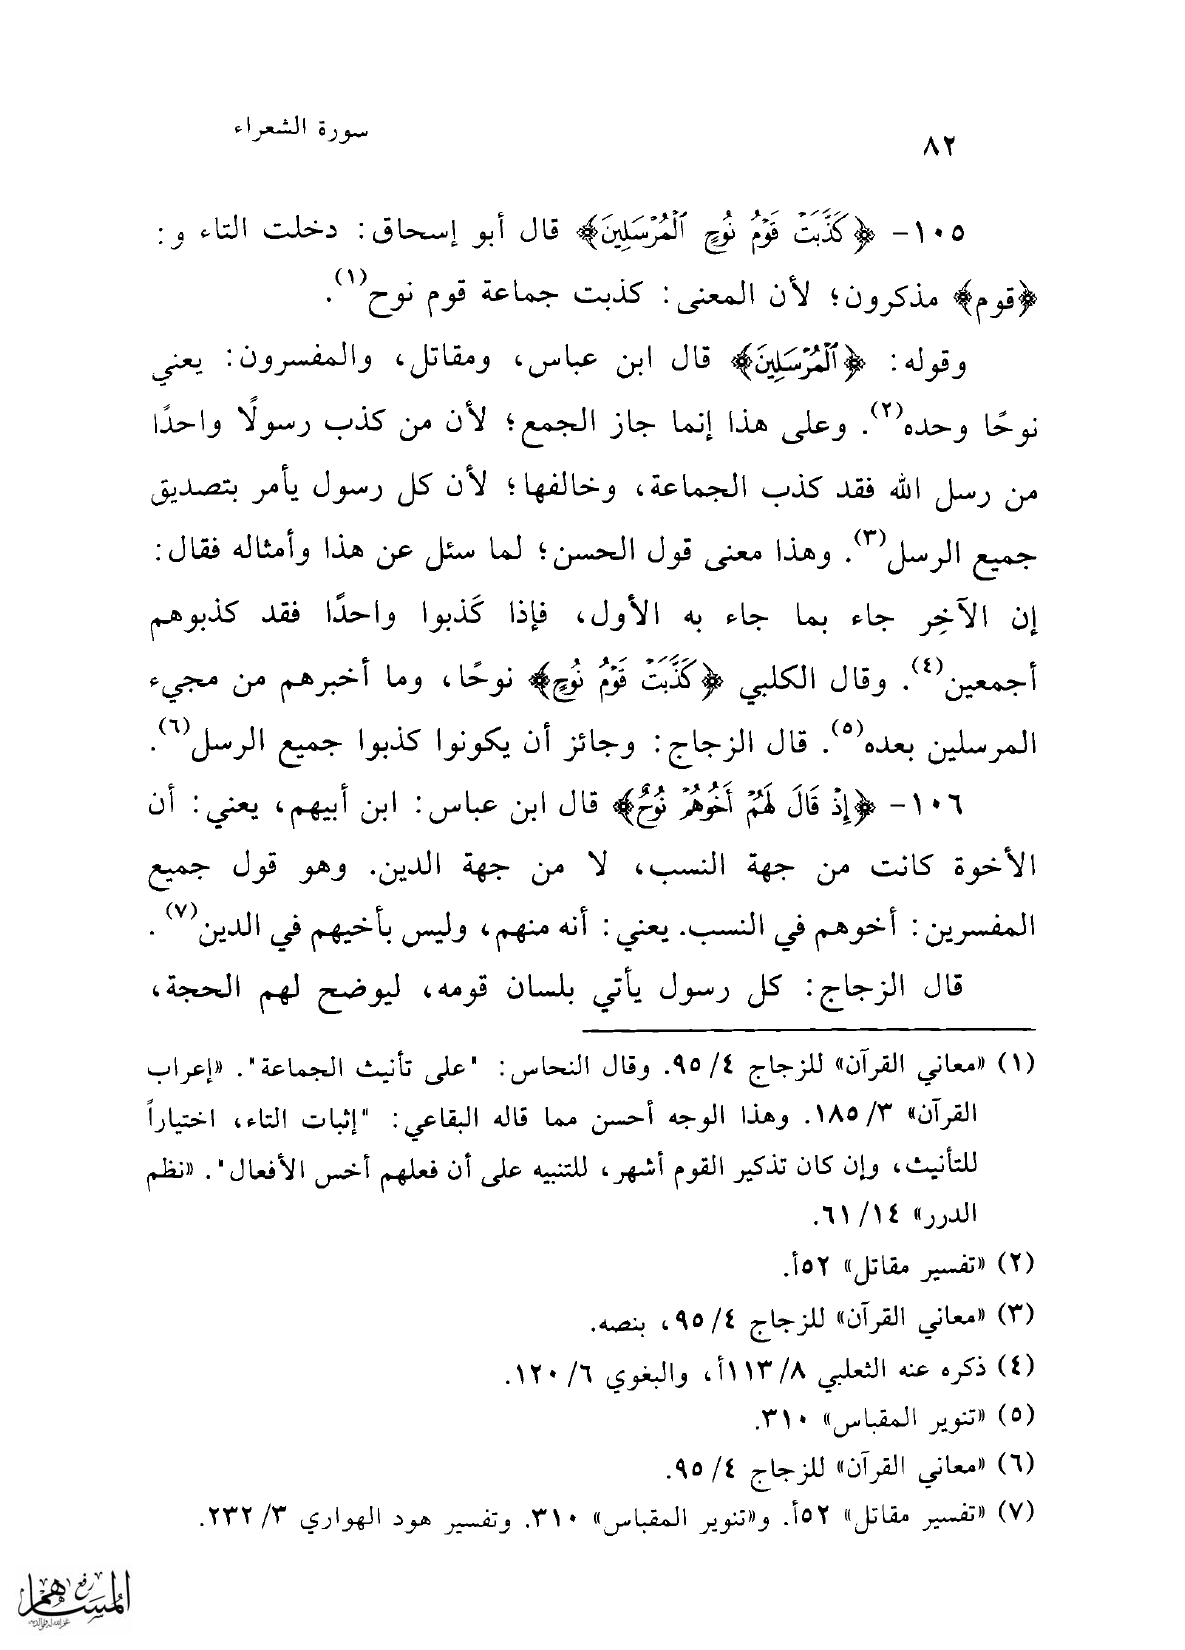 ٨٢
سورة الشعراء
١٠٥- ﴿كَذَّبَتْ قَوْمُ نُوحٍ ٱلْمُرْسَلِينَ﴾ قال أبو إسحاق: دخلت التاء و:
﴿قوم﴾ مذكرون؛ لأن المعنى: كذبت جماعة قوم نوح(١).
وقوله: ﴿ٱلْمُرْسَلِينَ﴾ قال ابن عباس، ومقاتل، والمفسرون: يعني
نوحًا وحده(٢). وعلى هذا إنما جاز الجمع؛ لأن من كذب رسولًا واحدًا
من رسل الله فقد كذب الجماعة، وخالفها؛ لأن كل رسول يأمر بتصديق
جميع الرسل(٣). وهذا معنى قول الحسن؛ لما سئل عن هذا وأمثاله فقال:
إن الآخِر جاء بما جاء به الأول، فإذا كَذبوا واحدًا فقد كذبوهم
أجمعين(٤). وقال الكلبي ﴿كَذَّبَتْ قَوْمُ نُوحٍ﴾ نوحًا، وما أخبرهم من مجيء
المرسلين بعده(٥). قال الزجاج: وجائز أن يكونوا كذبوا جميع الرسل(٦).
١٠٦- ﴿إِذْ قَالَ لَهُمْ أَخُوهُمْ نُوحٌ﴾ قال ابن عباس: ابن أبيهم، يعني: أن
الأخوة كانت من جهة النسب، لا من جهة الدين. وهو قول جميع
المفسرين: أخوهم في النسب. يعني: أنه منهم، وليس بأخيهم في الدين(٧).
قال الزجاج: كل رسول يأتي بلسان قومه، ليوضح لهم الحجة،
(١) «معاني القرآن» للزجاج ٤/ ٩٥. وقال النحاس: "على تأنيث الجماعة". «إعراب
القرآن» ٣/ ١٨٥. وهذا الوجه أحسن مما قاله البقاعي: "إثبات التاء، اختياراً
للتأنيث، وإن كان تذكير القوم أشهر، للتنبيه على أن فعلهم أخس الأفعال". «نظم
الدرر» ١٤/ ٦١.
(٢) «تفسير مقاتل» ٥٢أ.
(٣) «معاني القرآن» للزجاج ٤/ ٩٥، بنصه.
(٤) ذكره عنه الثعلبي ٨/ ١١٣أ، والبغوي ٦/ ١٢٠.
(٥) «تنوير المقباس» ٣١٠.
(٦) «معاني القرآن» للزجاج ٤/ ٩٥.
(٧) «تفسير مقاتل» ٥٢أ. و«تنوير المقباس» ٣١٠. وتفسير هود الهواري ٣/ ٢٣٢.
رفع
المساهم